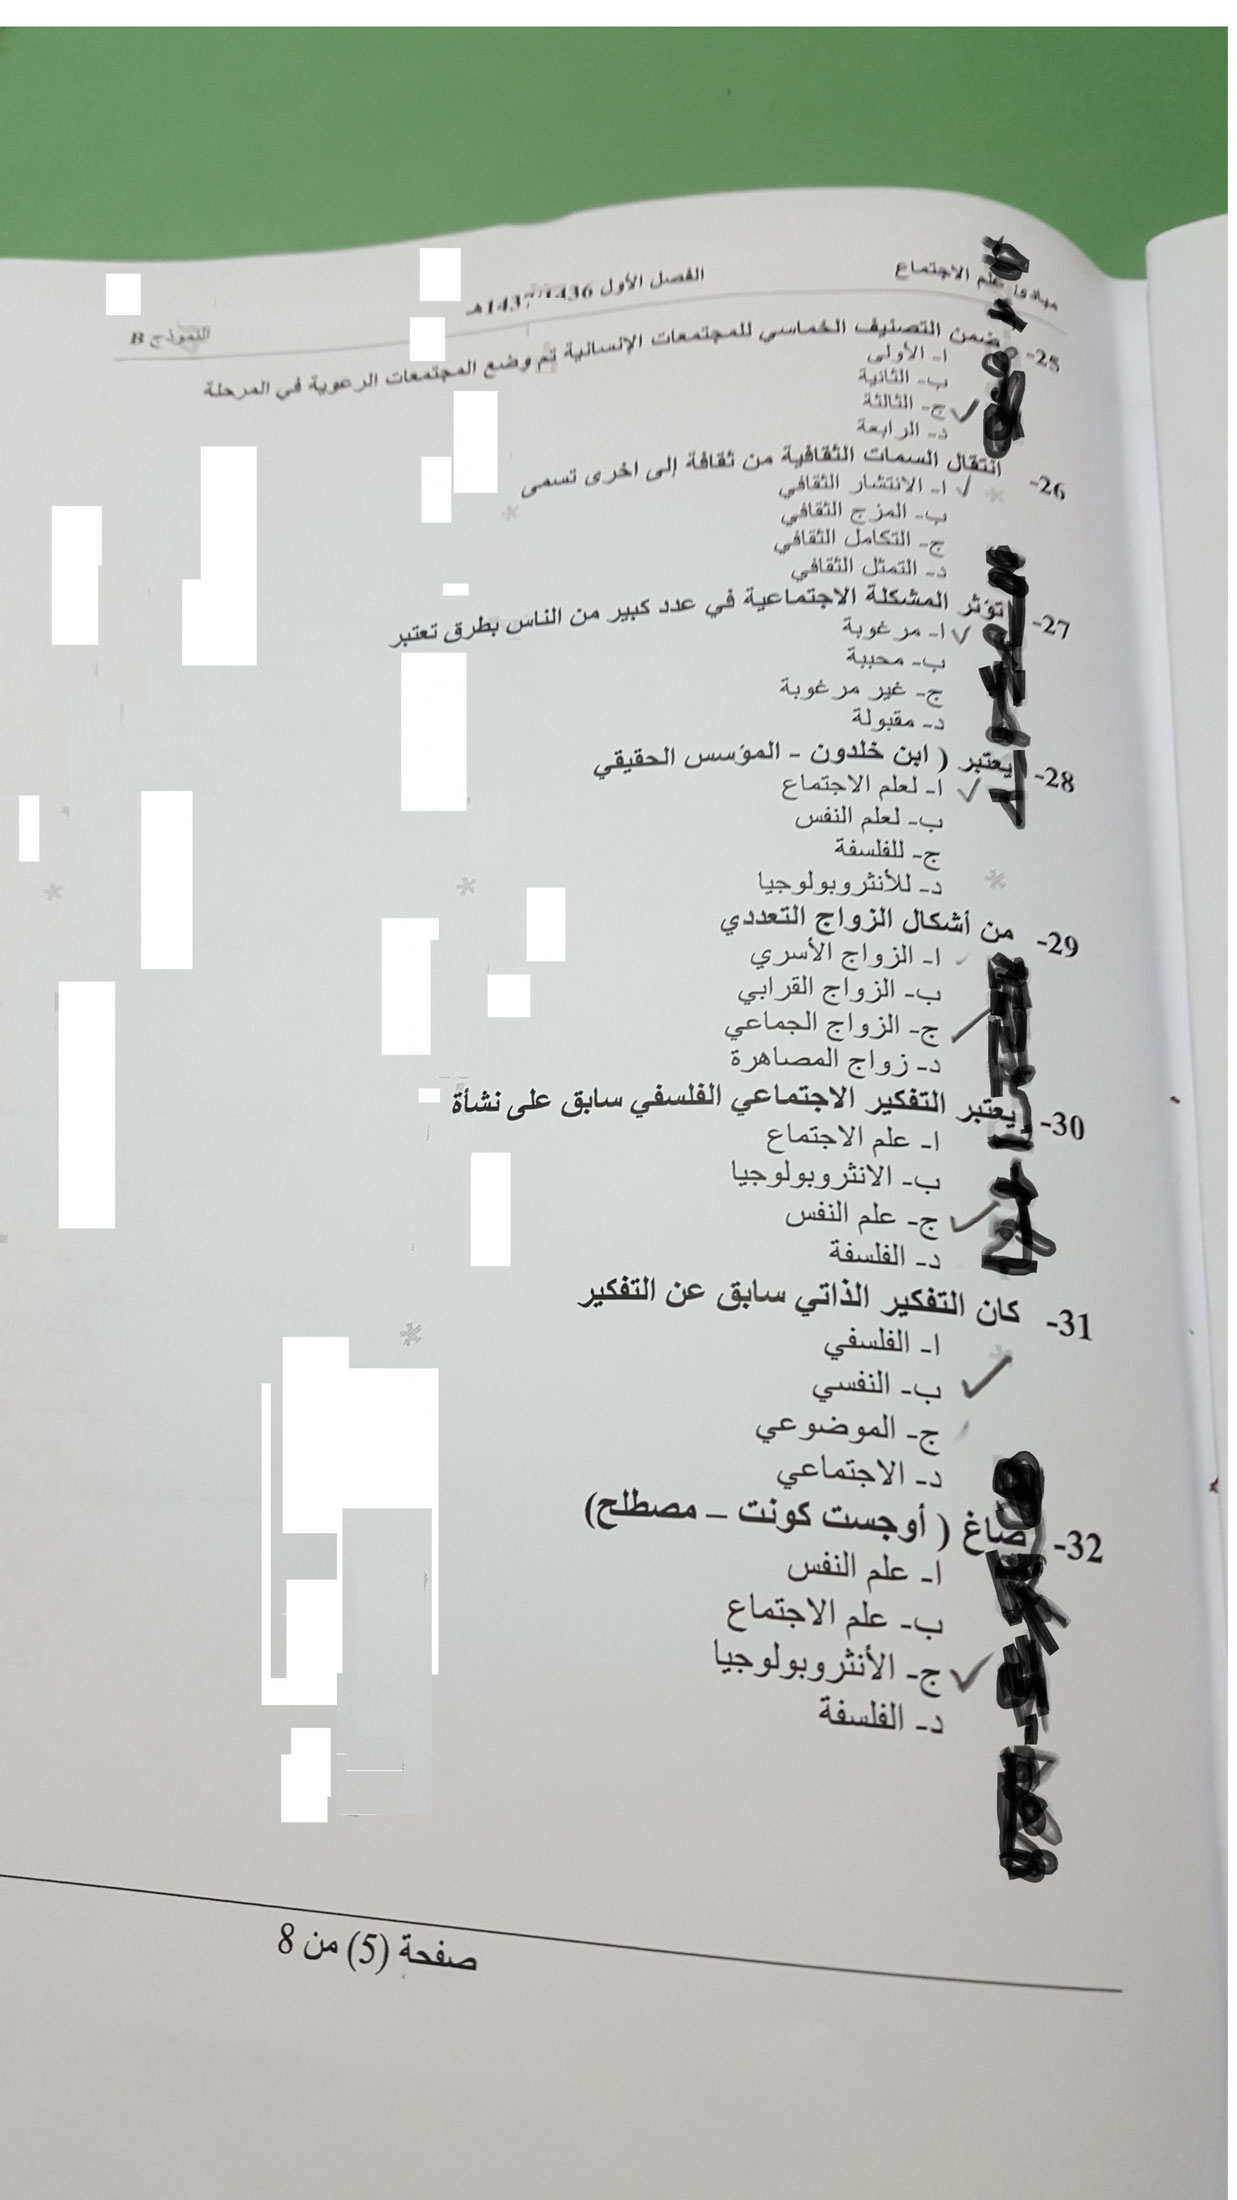 مبادئ علم الاجتماع الفصل الأول 1436 1437هـ النموذج B
25- ضمن التصنيف الخماسي للمجتمعات الإنسانية تم وضع المجتمعات الرعوية في المرحلة
ا- الأولى
ب- الثانية
ج- الثالثة
د- الرابعة
26- انتقال السمات الثقافية من ثقافة إلى اخرى تسمى
ا- الانتشار الثقافي
ب- المزج الثقافي
ج- التكامل الثقافي
د- التمثل الثقافي
27- تؤثر المشكلة الاجتماعية في عدد كبير من الناس بطرق تعتبر
ا- مرغوبة
ب- محببة
ج- غير مرغوبة
د- مقبولة
28- يعتبر ( ابن خلدون - المؤسس الحقيقي
ا- لعلم الاجتماع
ب- لعلم النفس
ج- للفلسفة
د- للأنثروبولوجيا
29- من أشكال الزواج التعددي
ا- الزواج الأسري
ب- الزواج القرابي
ج- الزواج الجماعي
د- زواج المصاهرة
30- يعتبر التفكير الاجتماعي الفلسفي سابق على نشأة
ا- علم الاجتماع
ب- الانثروبولوجيا
ج- علم النفس
د- الفلسفة
31- كان التفكير الذاتي سابق عن التفكير
ا- الفلسفي
ب- النفسي
ج- الموضوعي
د- الاجتماعي
32- صاغ ( أوجست كونت – مصطلح)
ا- علم النفس
ب- علم الاجتماع
ج- الأنثروبولوجيا
د- الفلسفة
صفحة (5) من 8